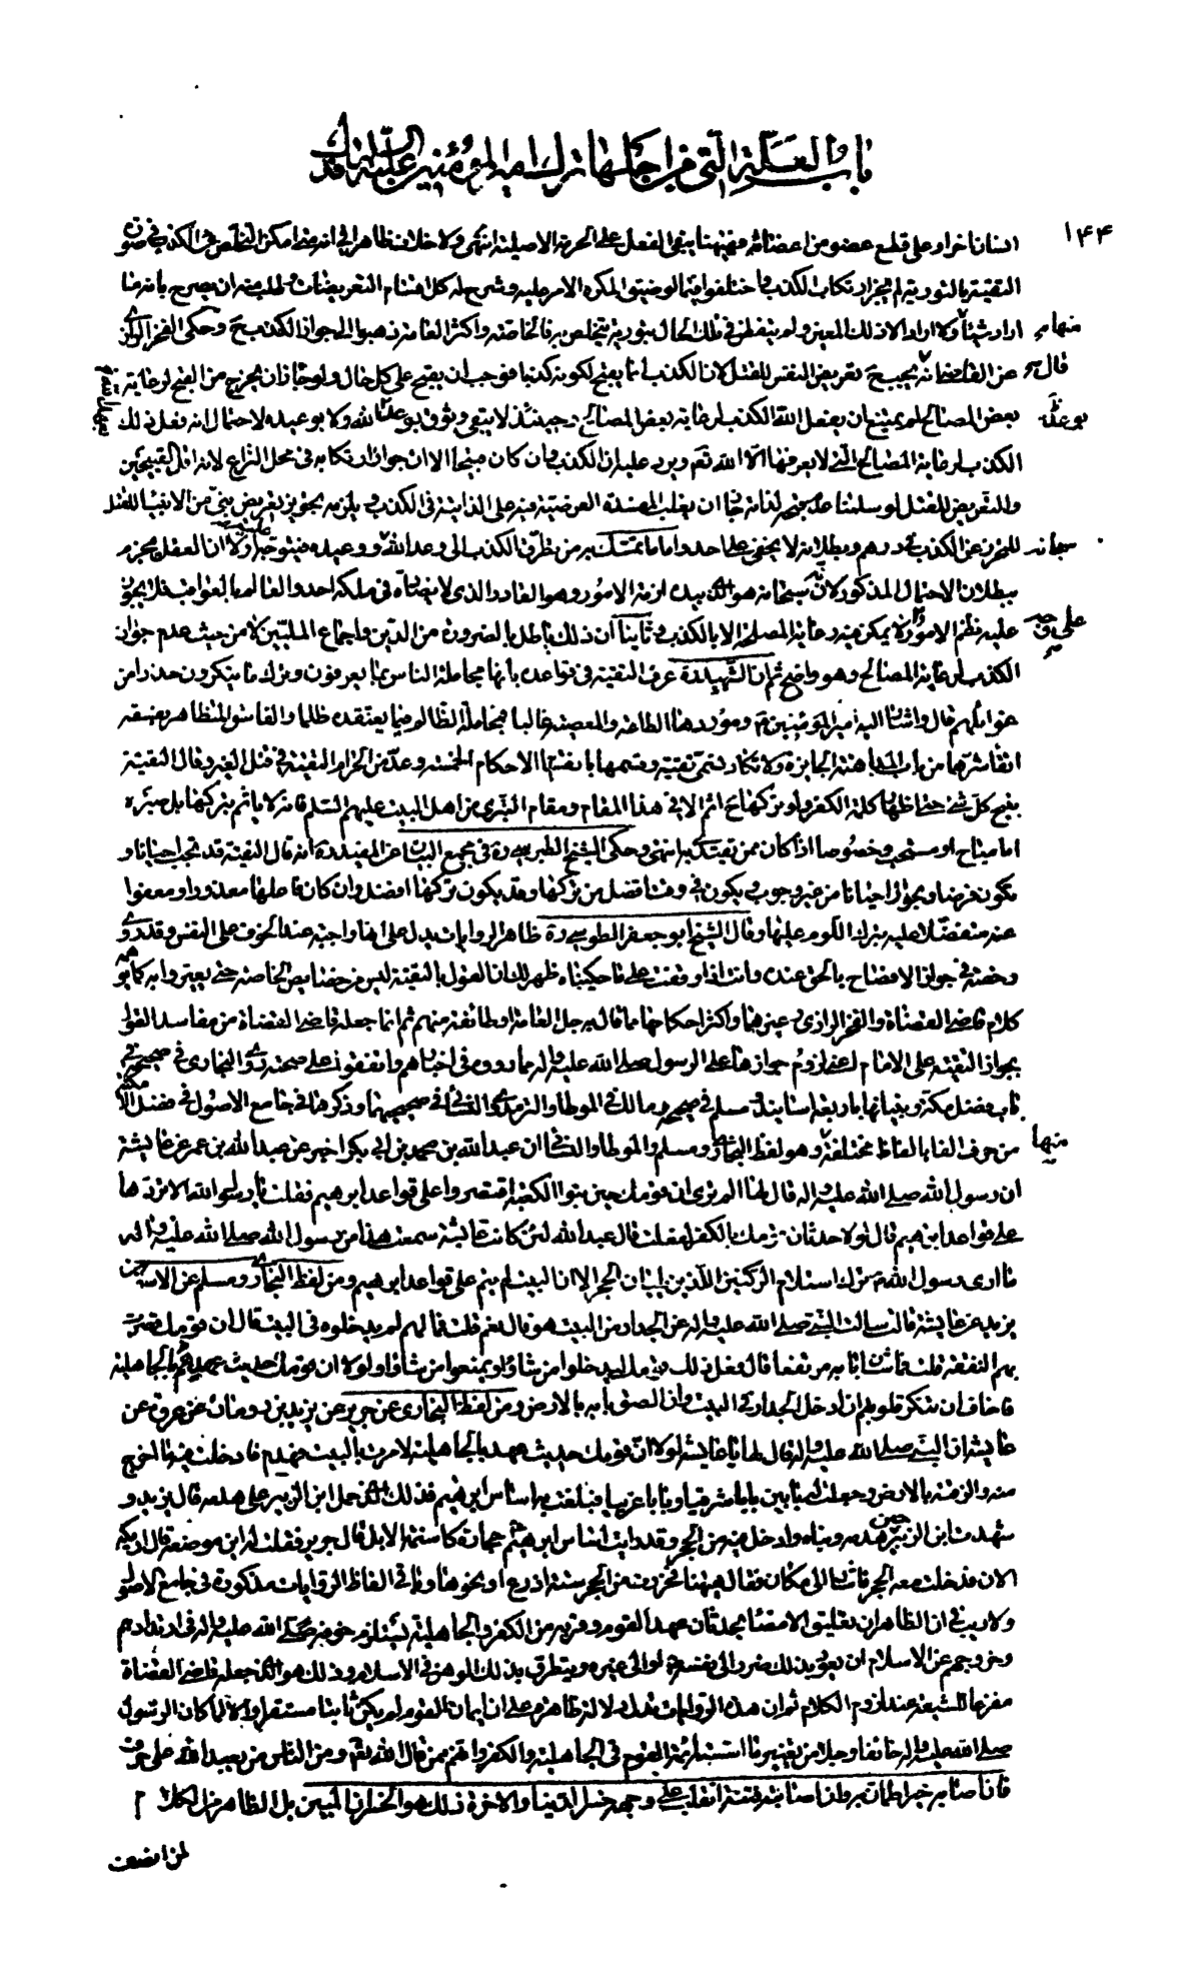 باب العلة التي من اجلها ترك امير المؤمنين عليه السلام فدك
١٤٤
انسانا اخر او على قطع عضو من اعضائه فههنا يبقى الفعل على الحرمة الاصلية انتهى ولا خلاف ظاهرا في انه متى امكن التخلص من الكذب في صورة
التقية بالتورية لم يجز ارتكاب الكذب واختلفوا فيما لو ضيق المكره الامر عليه وشرح له كل اقسام التعريضات وطلب منه ان يصرح بانه ما
اراد شيئا منها ولا اراد الا ذلك المعين ولو لم يتفطن في تلك الحال بتورية يتخلص به فالخاصة واكثر العامة ذهبوا الى جواز الكذب ح وحكى الفخر الرازي
عن القاضي انه قال يجب ح تعريض النفس للقتل لان الكذب انما يقبح لكونه كذبا فوجب ان يقبح على كل حال ولو جاز ان يخرج من القبح لرعاية
بعض المصالح لم يمتنع ان يفعل الله الكذب لرعاية بعض المصالح وحينئذ لا يبقى وثوق بوعد الله ولا بوعيده لاحتمال انه فعل ذلك
الكذب لرعاية المصالح التي لا يعرفها الا الله تعم ويرد عليه ان الكذب وان كان قبيحا الا ان جواز ارتكابه في محل النزاع لانه اقل القبيحين
والتعريض للقتل لو سلمنا عدم قبحه لذاته جاز ان يغلب المفسدة العرضية فيه على الذاتية في الكذب ويلزمه تجويز تعريض نبي من الانبياء للقتل
للتحرز عن الكذب في درهم وبطلانه لا يخفى على احد واما ما تمسك به من تطرق الكذب الى وعد الله ووعيده فيتوجه عليه اولا ان العقل يجزم
ببطلان الاحتمال المذكور لانه سبحانه هو الذي بيده ازمة الامور وهو القادر الذي لا يضادّه في ملكه احد والعالم بالعواقب فلا يجوز
عليه نظم الامور على وجه لا يمكن فيه رعاية المصلحة الا بالكذب وثانيا ان ذلك باطل بالضرورة من الدين واجماع المليين لا من حيث عدم جواز
الكذب لرعاية المصالح وهو واضح ثم ان الشهيد ره عرف التقية في قواعده بانها مجاملة الناس بما يعرفون وترك ما ينكرون حذرا من
غوائلهم قال واشار اليه امير المؤمنين ع وموردها الطاعة والمعصية غالبا فمجاملة الظالم فيما يعتقده ظلما والفاسق المتظاهر بفسقه
اتقاء شرهما من باب المداهنة الجائزة ولا تكاد تسمى تقية وقسمها بانقسام الاحكام الخمسة وعدّ من الحرام التقية في قتل الغير وقال التقية
يبيح كل شئ حتى اظهار كلمة الكفر ولو تركها ح اثم الا في هذا المقام ومقام التبري من اهل البيت عليهم السلم فانه لا ياثم بتركها بل صبره
اما مباح او مستحب وخصوصا اذا كان ممن يقتدى به انتهى وحكى الشيخ الطبرسي ره في مجمع البيان عن المفيد ره انه قال التقية قد تجب احيانا و
يكون فرضا ويجوز احيانا من غير وجوب ويكون في وقت افضل من تركها وقد يكون تركها افضل وان كان فاعلها معذورا ومعفوا
عنه متفضلا عليه بترك اللوم عليها وقال الشيخ ابو جعفر الطوسي ره ظاهر الروايات يدل على انها واجبة عند الخوف على النفس وقد روي
رخصة في جواز الافصاح بالحق عنده وانت اذا وقفت على ما حكيناه ظهر لك ان القول بالتقية ليس من خصايص الخاصة حتى يعيروا به كما يوهمه
كلام قاضي القضاة والفخر الرازي وغيرهما واكثر احكامها مما قال به جل العامة او طائفة منهم ثم انما جعله قاضي القضاة من مفاسد القول
بجواز التقية على الامام اعني لزوم جوازها على الرسول صلى الله عليه واله مما رووه في اخبارهم واتفقوا على صحته روى البخاري في صحيحه في
باب فضل مكة وبنيانها باربعة اسانيد ومسلم في صحيحه ومالك في الموطا والترمذي والنسائي في صحيحيهما وذكرها في جامع الاصول في فضل الامكنة
من حرف الفا بالفاظ مختلفة منها وهو لفظ البخاري ومسلم والموطا والنسائي ان عبد الله بن محمد بن ابي بكر اخبر عن عبد الله بن عمر عن عايشة
ان رسول الله صلى الله عليه واله قال لها الم تري ان قومك حين بنوا الكعبة اقتصروا على قواعد ابرهيم فقلت يا رسول الله الا تردّها
على قواعد ابرهيم قال لولا حدثان قومك بالكفر لفعلت قال عبد الله لئن كانت عائشة سمعت هذا من رسول الله صلى الله عليه واله
ما ارى رسول الله ص ترك استلام الركنين اللذين يليان الحجر الا ان البيت لم يتم على قواعد ابرهيم ومن لفظ البخاري ومسلم عن الاسود بن
يزيد عن عايشة قالت سالت النبي صلى الله عليه واله عن الجدار من البيت هو قال نعم قلت فما لهم لم يدخلوه في البيت قال ان قومك قصرت
بهم النفقة قلت فما شان بابه مرتفعا قال فعل ذلك قومك ليدخلوا من شاؤا ويمنعوا من شاؤا ولولا ان قومك حديث عهدهم بالجاهلية
فاخاف ان تنكر قلوبهم ان ادخل الجدار في البيت وان الصق بابه بالارض ومن لفظ البخاري عن جرير عن يزيد بن رومان عن عروة عن
عايشة ان النبي صلى الله عليه واله قال لها يا عايشة لولا ان قومك حديث عهد بالجاهلية لامرت بالبيت فهدم فادخلت فيه ما اخرج
منه والزقته بالارض وجعلت له بابين بابا شرقيا وبابا غربيا فبلغت به اساس ابرهيم فذلك الذي حمل ابن الزبير على هدمه قال يزيد و
شهدت ابن الزبير حين هدمه وبناه وادخل فيه من الحجر وقد رايت اساس ابرهيم حجارة كاسنمة الابل قال جرير فقلت له اين موضعه قال اريكه
الان فدخلت معه الحجر فاشار الى مكان فقال ههنا فحزرت من الحجر ستة اذرع او نحوها وباقي الفاظ الروايات مذكورة في جامع الاصول
ولا ريب في ان الظاهر ان تعليق الامضاء بحدثان عهد القوم وقربه من الكفر والجاهلية يستلزم خوفه صلى الله عليه واله في ارتدادهم
وخروجهم عن الاسلام ان يعود بذلك ضرر الى نفسه او الى غيره ويتطرق بذلك الوهن في الاسلام وذلك هو الذي جعله قاضي القضاة
مفرعا للشيعة عند لزوم الكلام ثم ان هذه الروايات تدل دلالة ظاهرة على ان ايمان القوم لم يكن ثابتا مستقرا والا لما كان الرسول
صلى الله عليه واله خائفا وجلا من تغيير ما استنّ ائمة القوم في الجاهلية والكفر وانهم ممن قال الله تعم ومن الناس من يعبد الله على حرف
فان اصابه خير اطمان به وان اصابته فتنة انقلب على وجهه خسر الدنيا والاخرة ذلك هو الخسران المبين بل الظاهر من الكلام
لمن انصف